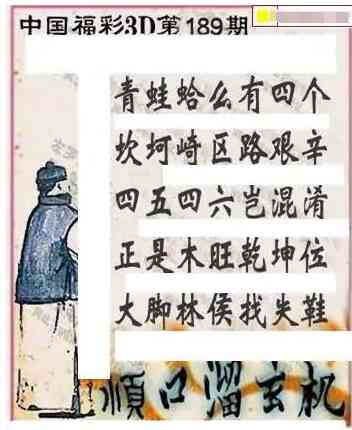 中国福彩3D第189期
青蛙蛤么有四个
坎坷崎区路艰辛
四五四六岂混淆
正是木旺乾坤位
大脚林侯找失鞋
順口溜玄机